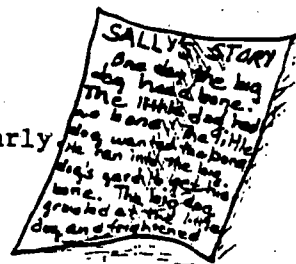 SALLY'S STORY
One day the big
dog had a bone.
The little dog had
no bone. The little
dog wanted the bone.
He ran into the big
dog's yard to get the
bone. The big dog
growled at the little
dog and frightened
arly